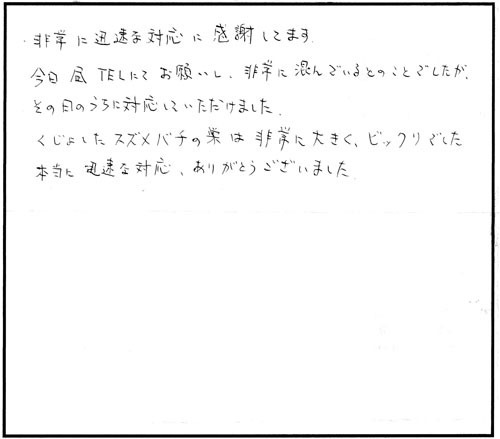 ・非常に迅速な対応に感謝してます.
今日昼TELにてお願いし、非常に混んでいるとのことでしたが、
その日のうちに対応していただけました.
くじょしたスズメバチの巣は非常に大きく、ビックリでした
本当に迅速な対応、ありがとうございました.